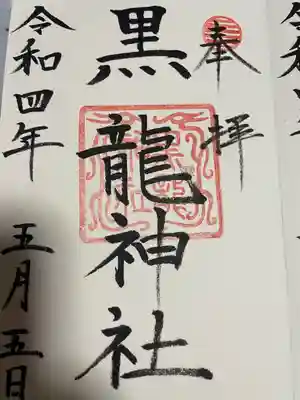 奉拝
黒龍神社
令和四年 五月五日